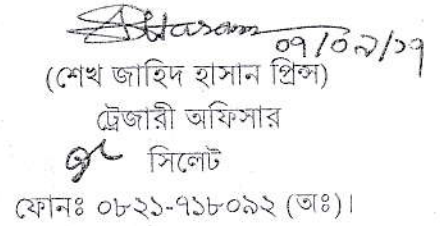 ০৭/০৯/১৭
(শেখ জাহিদ হাসান প্রিন্স)
ট্রেজারী অফিসার
সিলেট
ফোনঃ ০৮২১-৭১৮০৯২ (অঃ)।